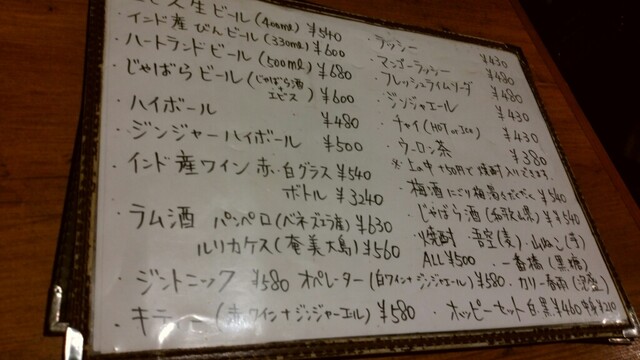 ビス生ビール(400ml) ¥540
・インド産びんビール(330ml) ¥600
・ハートランドビール(500ml) ¥680
・じゃばらビール(じゃばら酒 エビス) ¥600
・ハイボール ¥480
・ジンジャーハイボール ¥500
・インド産ワイン 赤・白 グラス ¥540
ボトル ¥3240
・ラム酒 パンペロ(ベネズエラ産) ¥630
ルリカケス(奄美大島) ¥560
・ジントニック ¥580 オペレーター(白ワイン+ジンジャエール) ¥580
・キティ (赤ワイン+ジンジャーエール) ¥580
・ラッシー ¥430
・マンゴーラッシー ¥480
・フレッシュライムソーダ ¥480
・ジンジャエール ¥430
・チャイ(HOT or ICE) ¥430
・ウーロン茶 ¥380
※上の中 +50円で焼酎入りできます。
・梅酒 にごり梅酒 ¥540
・じゃばら酒(和歌山県) ¥540
・焼酎 吾空(麦)・山ねこ(芋)
ALL ¥500 ・一番橋(黒糖)
・カリー春雨(泡盛)
・ホッピーセット 白・黒 ¥460 ¥210